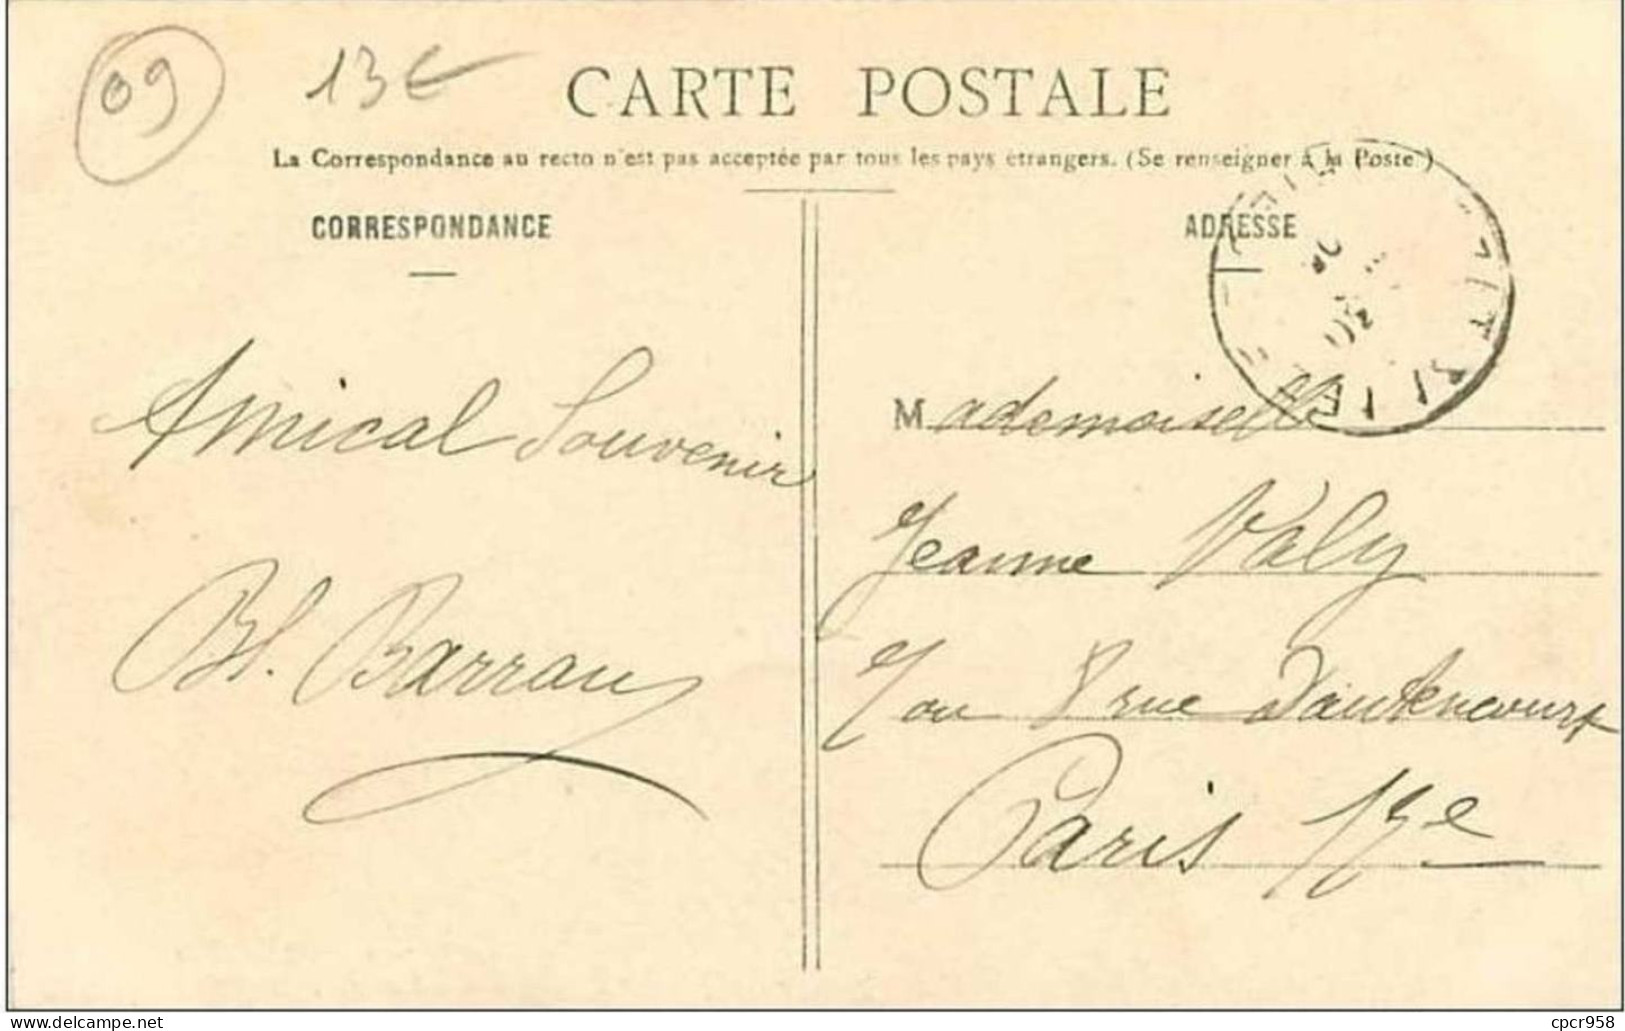 09
13€
CARTE POSTALE
La Correspondance au recto n'est pas acceptée par tous les pays étrangers. (Se renseigner à la Poste)
CORRESPONDANCE
ADRESSE
Amical Souvenir
Bl. Barrau
Mademoiselle
Jeanne Valy
8 rue Dautencourt
Paris 17e
cpcr958